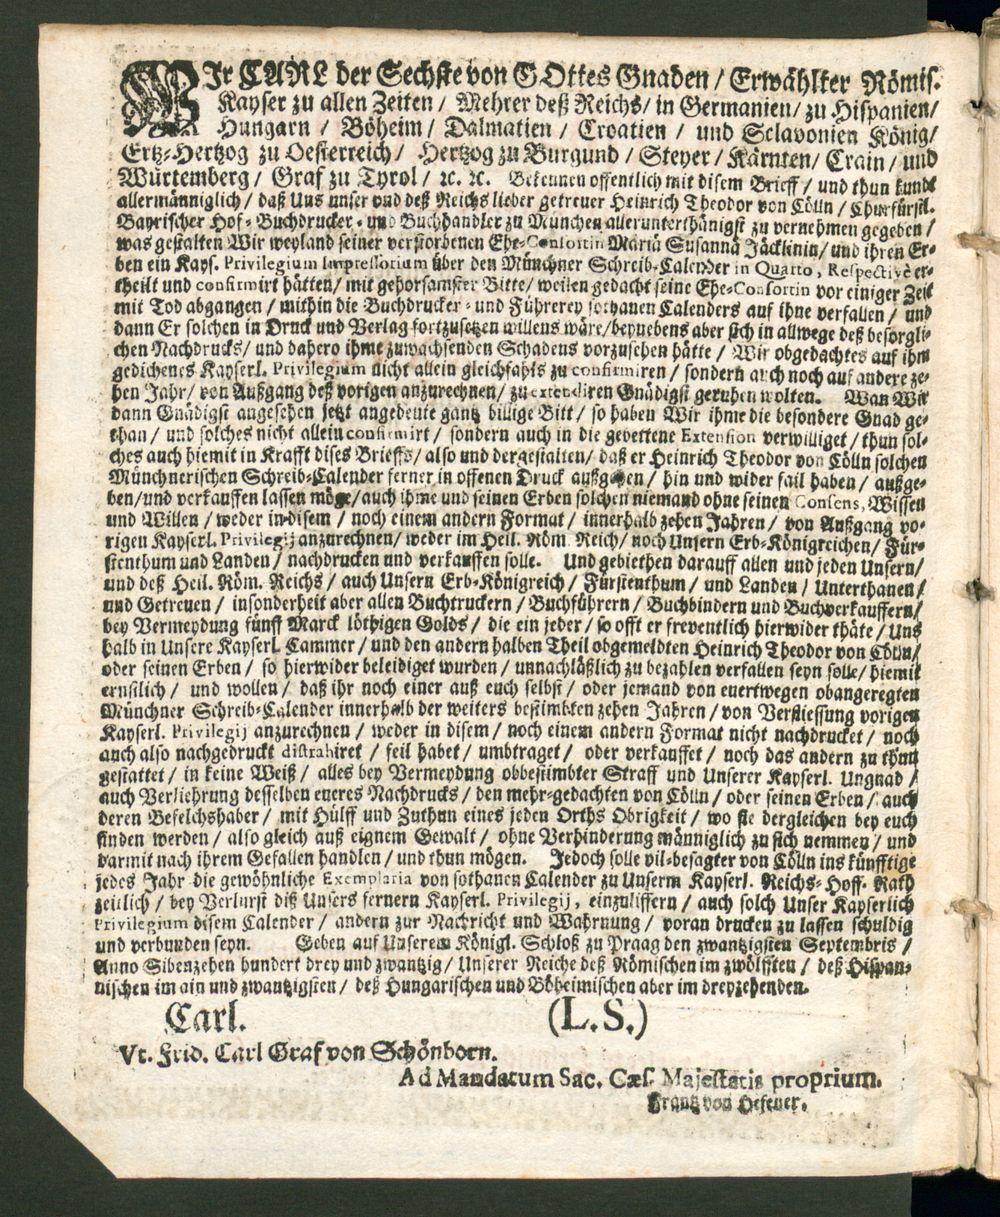 WIr CARL der Sechste von GOttes Gnaden / Erwählter Römis.
Kayser zu allen Zeiten / Mehrer deß Reichs / in Germanien / zu Hispanien /
Hungarn / Böheim / Dalmatien / Croatien / und Sclavonien König /
Ertz-Hertzog zu Oesterreich / Hertzog zu Burgund / Steyer / Kärnten / Crain / und
Würtemberg / Graf zu Tyrol / ꝛc. ꝛc. Bekennen offentlich mit disem Brieff / und thun kundt
allermänniglich / daß Uns unser und deß Reichs lieber getreuer Heinrich Theodor von Cölln / Churfürstl.
Bayrischer Hof-Buchdrucker- und Buchhandler zu München allerunterthänigst zu vernehmen gegeben /
was gestalten Wir weyland seiner verstorbenen Ehe-Consortin Mariä Susannä Jäcklinin / und ihren Er-
ben ein Kays. Privilegium Impressorium über den Münchner Schreib-Calender in Quarto, Respectivè er-
theilt und confirmirt hätten / mit gehorsamster Bitte / weilen gedacht seine Ehe-Consortin vor einiger Zeit
mit Tod abgangen / mithin die Buchdrucker- und Führerey sothanen Calenders auf ihne verfallen / und
dann Er solchen in Druck und Verlag fortzusetzen willens wäre / beynebens aber sich in allwege deß besorgli-
chen Nachdrucks / und dahero ihme zuwachsenden Schadens vorzusehen hätte / Wir obgedachtes auf ihn
gedichenes Kayserl. Privilegium nicht allein gleichfahls zu confirmiren / sondern auch noch auf andere ze-
hen Jahr / von Außgang deß vorigen anzurechnen / zu extendiren Gnädigst geruhen wolten. Wan Wir
dann Gnädigst angesehen jetzt angedeute gantz billige Bitt / so haben Wir ihme die besondere Gnad ge-
than / und solches nicht allein confirmirt / sondern auch in die gebettene Extension verwilliget / thun sol-
ches auch hiemit in Krafft dises Brieffs / also und dergestalten / daß er Heinrich Theodor von Cölln solchen
Münchnerischen Schreib-Calender ferner in offenen Druck außgehen / hin und wider fail haben / außge-
ben / und verkauffen lassen möge / auch ihme und seinen Erben solchen niemand ohne seinen Consens, Wissen
und Willen / weder in disem / noch einem andern Format / innerhalb zehen Jahren / von Außgang vo-
rigen Kayserl. Privilegij anzurechnen / weder im Heil. Röm. Reich / noch Unsern Erb-Königreichen / Für-
stenthum und Landen / nachdrucken und verkauffen solle. Und gebiethen darauff allen und jeden Unsern /
und deß Heil. Röm. Reichs / auch Unsern Erb-Königreich / Fürstenthum / und Landen / Unterthanen /
und Getreuen / insonderheit aber allen Buchtruckern / Buchführern / Buchbindern und Buchverkauffern /
bey Vermeydung fünff Marck löthigen Golds / die ein jeder / so offt er freventlich hierwider thäte / Uns
halb in Unsere Kayserl. Cammer / und den andern halben Theil obgemeldten Heinrich Theodor von Cölln /
oder seinen Erben / so hierwider beleidiget wurden / unnachläßlich zu bezahlen verfallen seyn solle / hiemit
ernstlich / und wollen / daß ihr noch einer auß euch selbst / oder jemand von euertwegen obangeregten
Münchner Schreib-Calender innerhalb der weiters bestimbten zehen Jahren / von Verfliessung vorigen
Kayserl. Privilegij anzurechnen / weder in disem / noch einem andern Format nicht nachdrucket / noch
auch also nachgedruckt distrahiret / feil habet / umbtraget / oder verkauffet / noch das andern zu thun
gestattet / in keine Weiß / alles bey Vermeydung obbestimbter Straff und Unserer Kayserl. Ungnad /
auch Verliehrung desselben eueres Nachdrucks / den mehr-gedachten von Cölln / oder seinen Erben / auch
deren Befelchshaber / mit Hülff und Zuthun eines jeden Orths Obrigkeit / wo sie dergleichen bey euch
finden werden / also gleich auß eignem Gewalt / ohne Verhinderung männiglich zu sich nemmen / und
darmit nach ihrem Gefallen handlen / und thun mögen. Jedoch solle vil-besagter von Cölln ins künfftige
jedes Jahr die gewöhnliche Exemplaria von sothanen Calender zu Unserm Kayserl. Reichs-Hoff-Rath
zeitlich / bey Verlurst diß Unsers fernern Kayserl. Privilegij, einzuliffern / auch solch Unser Kayserlich
Privilegium disem Calender / andern zur Nachricht und Wahrnung / voran drucken zu lassen schuldig
und verbunden seyn. Geben auf Unserem Königl. Schloß zu Praag den zwantzigsten Septembris /
Anno Sibenzehen hundert drey und zwantzig / Unserer Reiche deß Römischen im zwölfften / deß Hispan-
nischen im ain und zwantzigsten / deß Hungarischen und Böheimischen aber im dreyzehenden.
Carl. (L.S.)
Vt. Frid. Carl Graf von Schönborn.
Ad Mandatum Sac. Cæs. Majestatis proprium.
Frantz von Hefener.